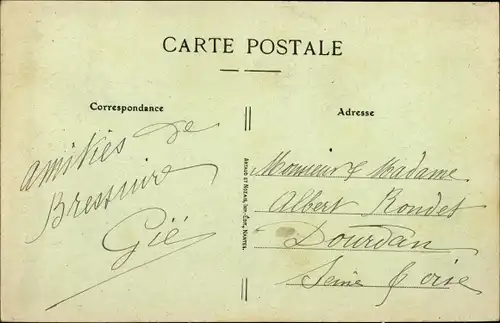 CARTE POSTALE
Correspondance
Adresse
amitiés de
Bressuire
Gié
ARTAUD ET NOZAIS, IMP.-ÉDIT., NANTES.
Monsieur & Madame
Albert Rondet
Dourdan
Seine & oise